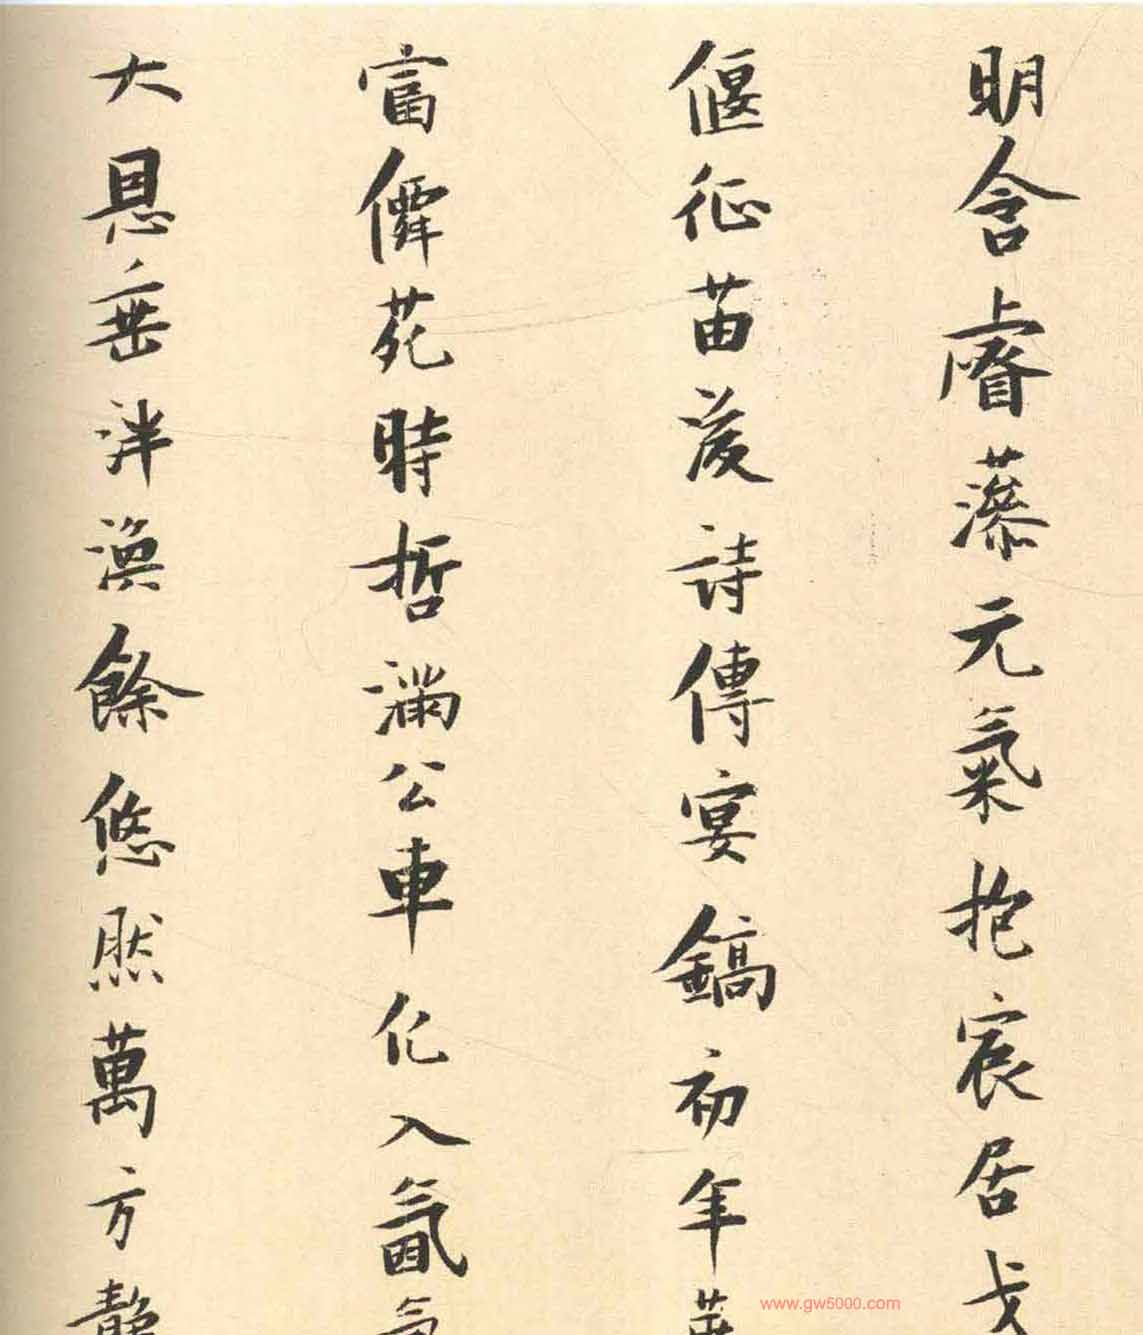 明含睿藻元氣抱宸居戈
偃征苗後詩傳宴鎬初年
富僊苑時哲滿公車化入氤
大恩垂泮渙餘悠然萬方靜
www.gw5000.com